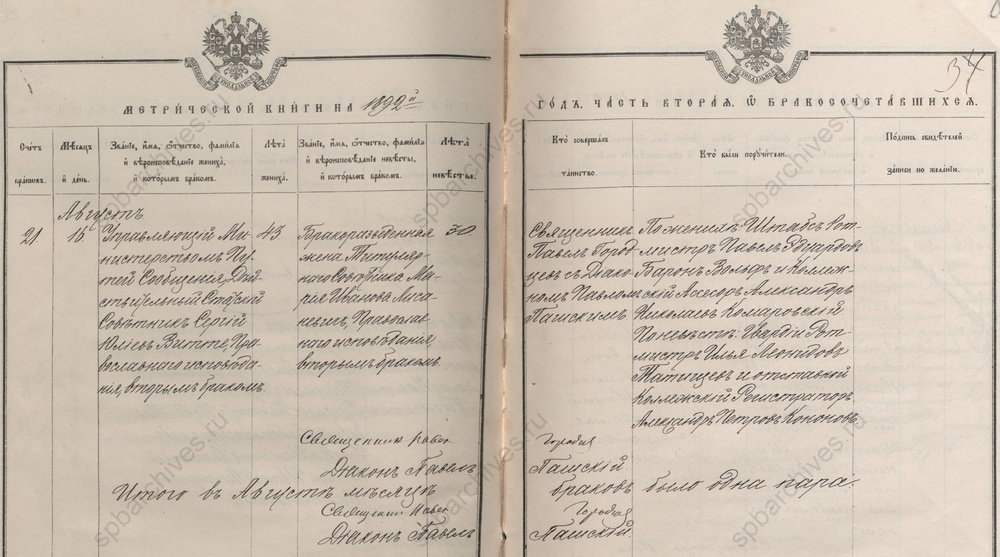 МЕТРИЧЕСКОЙ КНИГИ НА 1892й
ГОДЪ, ЧАСТЬ ВТОРАЯ, Ѡ БРАКОСОЧЕТАВШИХСЯ.
34
Счетъ браковъ.
Мѣсяцъ и день.
Званіе, имя, ѿчество, фамилія и вѣроисповѣданіе жениха, и которымъ бракомъ.
Лѣта жениха.
Званіе, имя, ѿчество, фамилія и вѣроисповѣданіе невѣсты, и которымъ бракомъ.
Лѣта невѣсты.
Кто совершалъ таинство.
Кто были поручители.
Подпись свидѣтелей записи по желанію.
Августъ
21
16.
Управляющій Ми-
нистерствомъ Пу-
тей Сообщенія, Дѣй-
ствительный Статскій
Совѣтникъ Сергій
Юліевъ Витте, Пра-
вославнаго исповѣда-
нія, вторымъ бракомъ
43.
Бракоразведенная
жена Титуляр-
наго Совѣтника Ма-
рія Иванова Лиса-
невичъ, Православ-
наго исповѣданія,
вторымъ бракомъ.
30
Священникъ
Павелъ Город-
цевъ съ Діако-
номъ Павломъ
Пашскимъ
По женихѣ: Штабсъ Рот-
мистръ Павелъ Эдуардовъ
Баронъ Вольфъ и Коллеж-
скій Ассесоръ Александръ
Николаевъ Комаровскій
По невѣстѣ: Гвардіи Рот-
мистръ Илья Леонидовъ
Татищевъ и отставной
Коллежскій Регистраторъ
Александръ Петровъ Кононовъ.
Священникъ Павелъ Городцевъ
Діаконъ Павелъ Пашскій
Итого въ Августѣ мѣсяцѣ браковъ было одна пара.
Священникъ Павелъ Городцевъ
Діаконъ Павелъ Пашскій.
spbarchives.ru